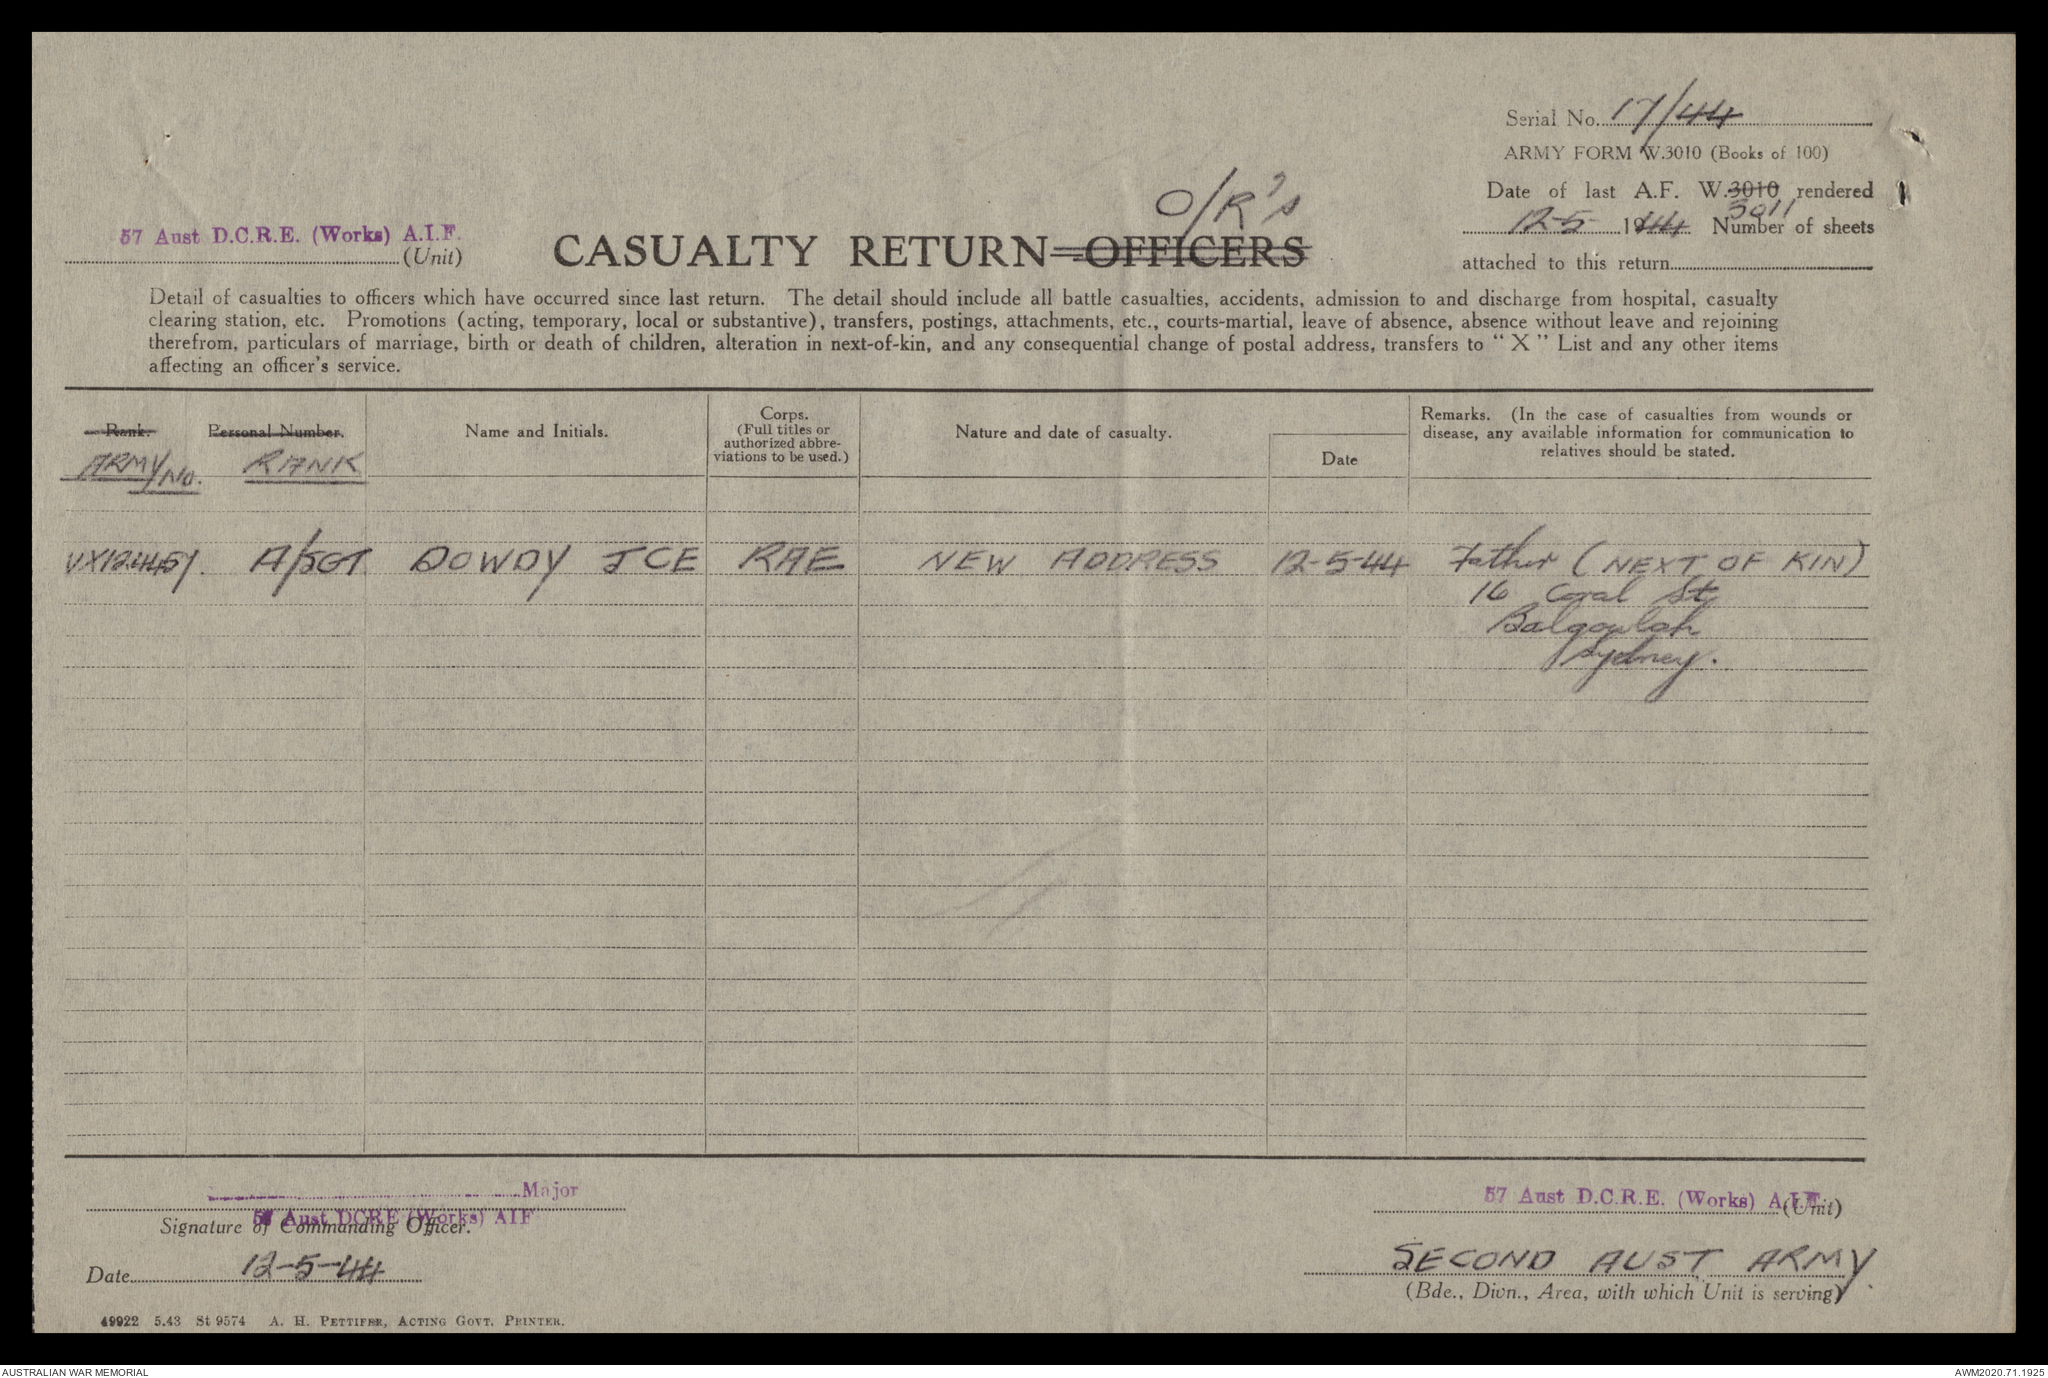 Serial No. 17/44
ARMY FORM W.3010 (Books of 100)
Date of last A.F. W.3010 rendered
3011
12-5- 1944 Number of sheets
attached to this return
57 Aust D.C.R.E. (Works) A.I.F.
(Unit)
O/R's
CASUALTY RETURN—OFFICERS
Detail of casualties to officers which have occurred since last return. The detail should include all battle casualties, accidents, admission to and discharge from hospital, casualty
clearing station, etc. Promotions (acting, temporary, local or substantive), transfers, postings, attachments, etc., courts-martial, leave of absence, absence without leave and rejoining
therefrom, particulars of marriage, birth or death of children, alteration in next-of-kin, and any consequential change of postal address, transfers to “ X ” List and any other items
affecting an officer's service.
Rank.
ARMY NO.
Personal Number.
RANK
Name and Initials.
Corps.
(Full titles or
authorized abbre-
viations to be used.)
Nature and date of casualty.
Date
Remarks. (In the case of casualties from wounds or
disease, any available information for communication to
relatives should be stated.
A/SGT DOWDY JCE RAE NEW ADDRESS 12-5-44 Father (NEXT OF KIN)
16 Coral St
Balgowlah
Sydney.
Major
57 Aust DCRE (Works) AIF
Signature of Commanding Officer.
Date 12-5-44
57 Aust D.C.R.E. (Works) A.I.F.
(Unit)
SECOND AUST ARMY.
(Bde., Divn., Area, with which Unit is serving)
49922 5.43 St 9574 A. H. PETTIFER, ACTING GOVT. PRINTER.
AUSTRALIAN WAR MEMORIAL
AWM2020.71.1925